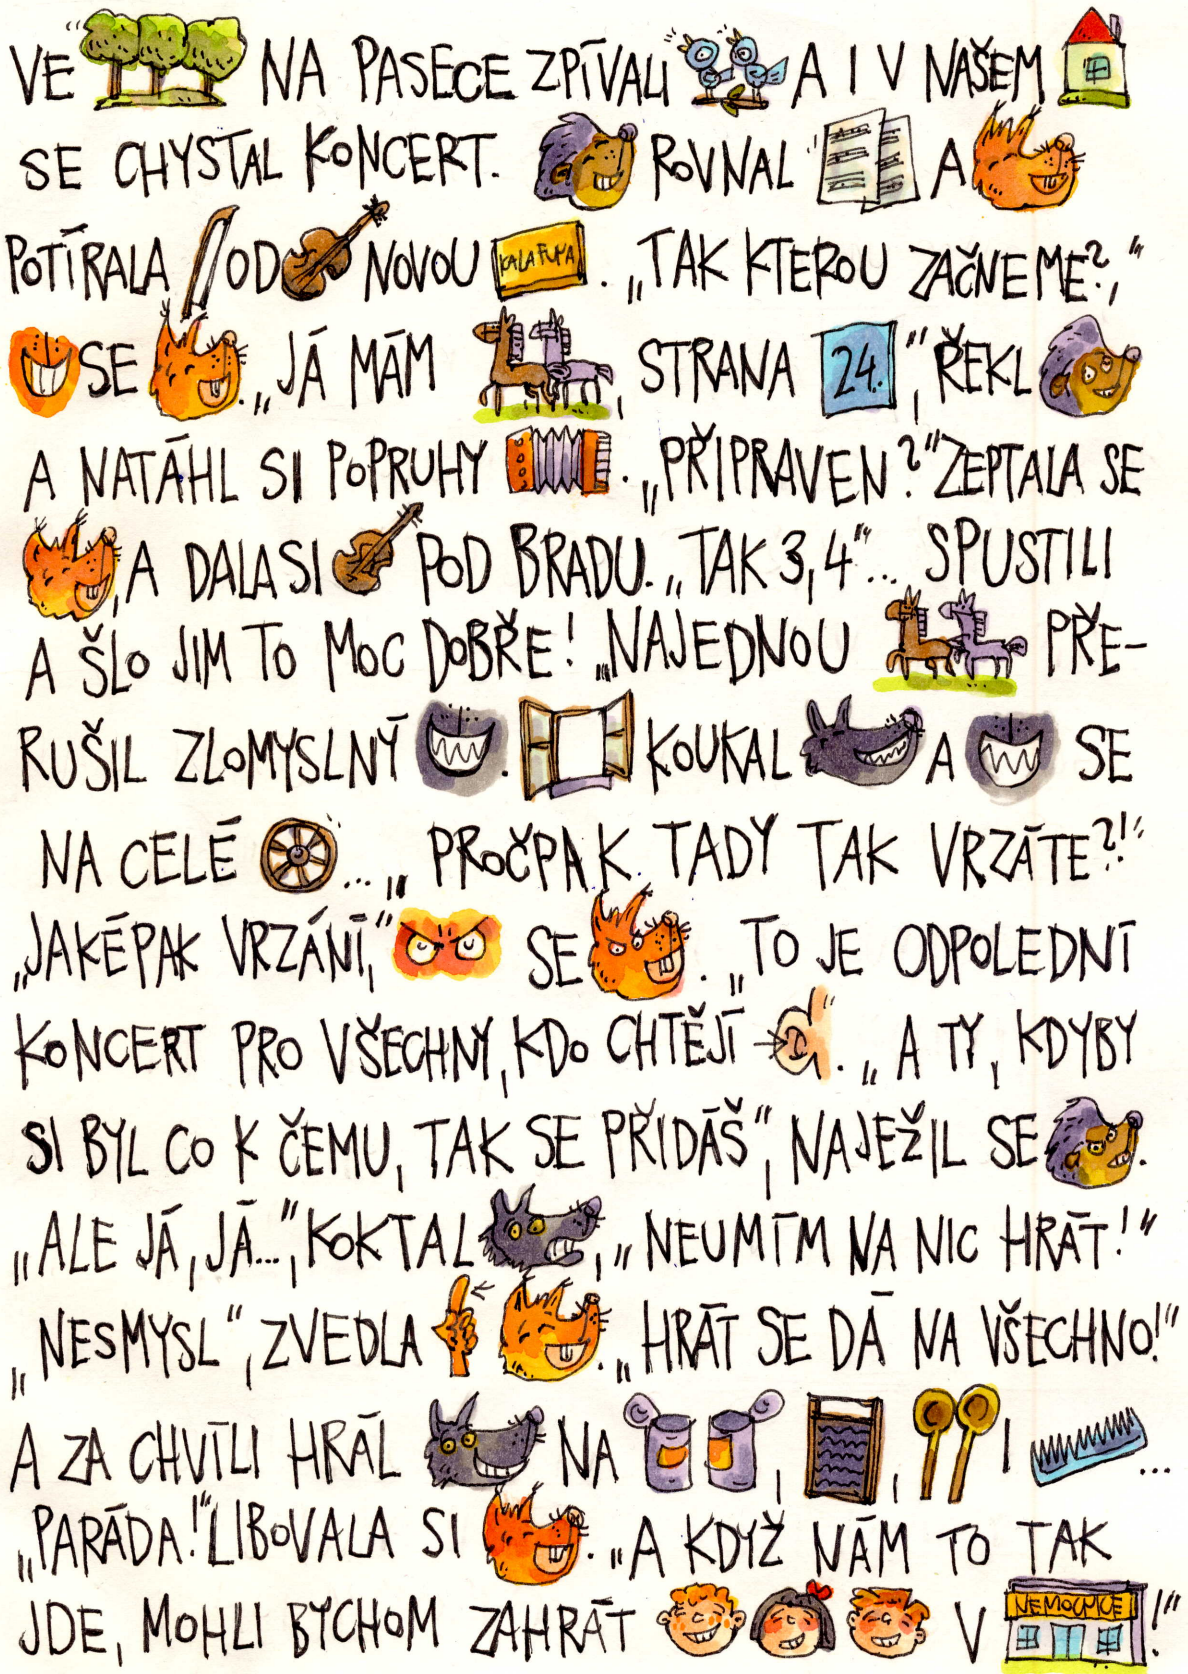 VE NA PASECE ZPÍVALI A I V NAŠEM
SE CHYSTAL KONCERT. ROVNAL A
POTÍRALA OD NOVOU KALAFUNA. „TAK KTEROU ZAČNEME?,“
SE. „JÁ MÁM, STRANA 24.“, ŘEKL
A NATÁHL SI POPRUHY. „PŘIPRAVEN?“ ZEPTALA SE
, A DALA SI POD BRADU. „TAK 3, 4“... SPUSTILI
A ŠLO JIM TO MOC DOBŘE! „NAJEDNOU PŘE-
RUŠIL ZLOMYSLNÝ. KOUKAL A SE
NA CELÉ ... „PROČPAK TADY TAK VRZÁTE?!“
„JAKÉPAK VRZÁNÍ,“ SE. „TO JE ODPOLEDNÍ
KONCERT PRO VŠECHNY, KDO CHTĚJÍ. „A TY, KDYBY
SI BYL CO K ČEMU, TAK SE PŘIDÁŠ“, NAJEŽIL SE.
„ALE JÁ, JÁ...“, KOKTAL, „NEUMÍM NA NIC HRÁT!“
„NESMYSL“, ZVEDLA. „HRÁT SE DÁ NA VŠECHNO!“
A ZA CHVÍLI HRÁL NA , , I ...
„PARÁDA!“ LIBOVALA SI. „A KDYŽ NÁM TO TAK
JDE, MOHLI BYCHOM ZAHRÁT V NEMOCNICE!“